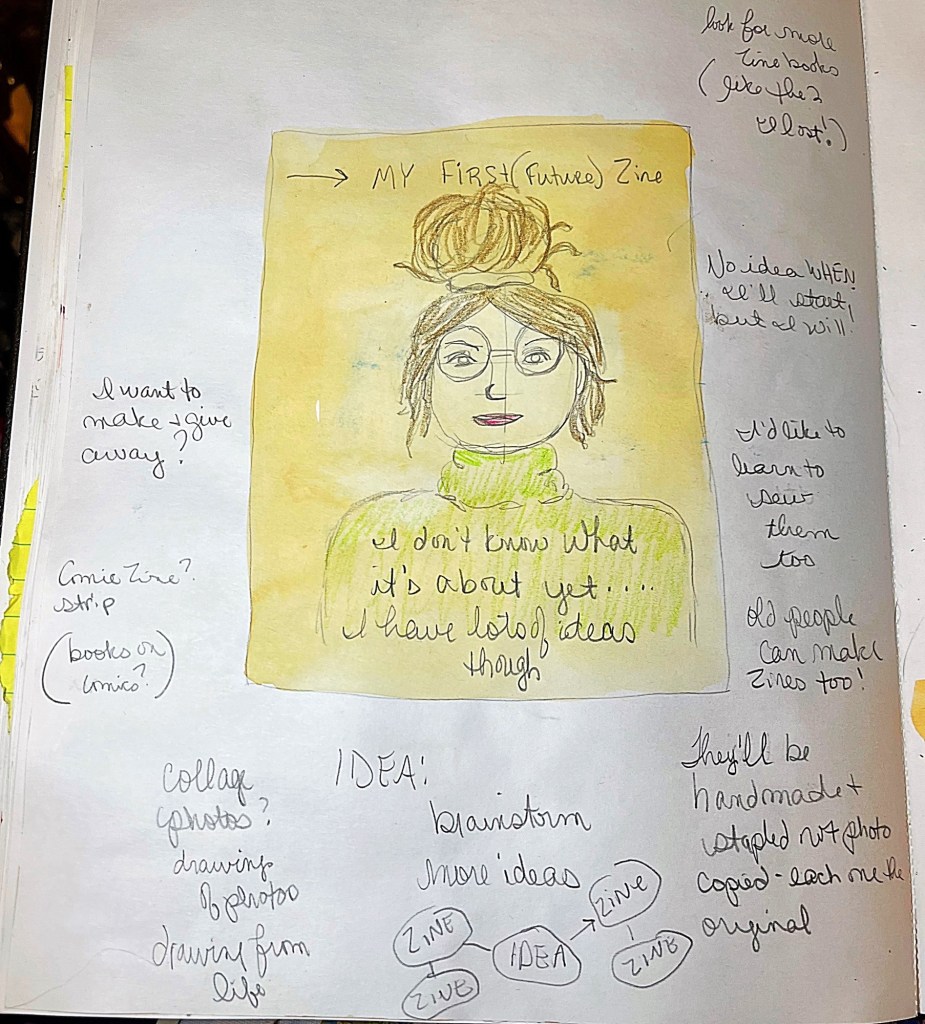 look for more
zine books
(like the 2
I lost!)
→ MY FIRST (future) Zine
No idea WHEN
I'll start,
but I will!
I want to
make + give
away?
I'd like to
learn to
sew
them
too
I don't know what
it's about yet....
I have lots of ideas
though
Comic Zine?
strip
(books on
comics?)
old people
can make
zines too!
collage
photos?
drawings
of photos
drawing from
life
IDEA:
brainstorm
more ideas
ZINE
ZINE
IDEA
ZINE
ZINE
They'll be
handmade +
stapled not photo
copied - each one the
original